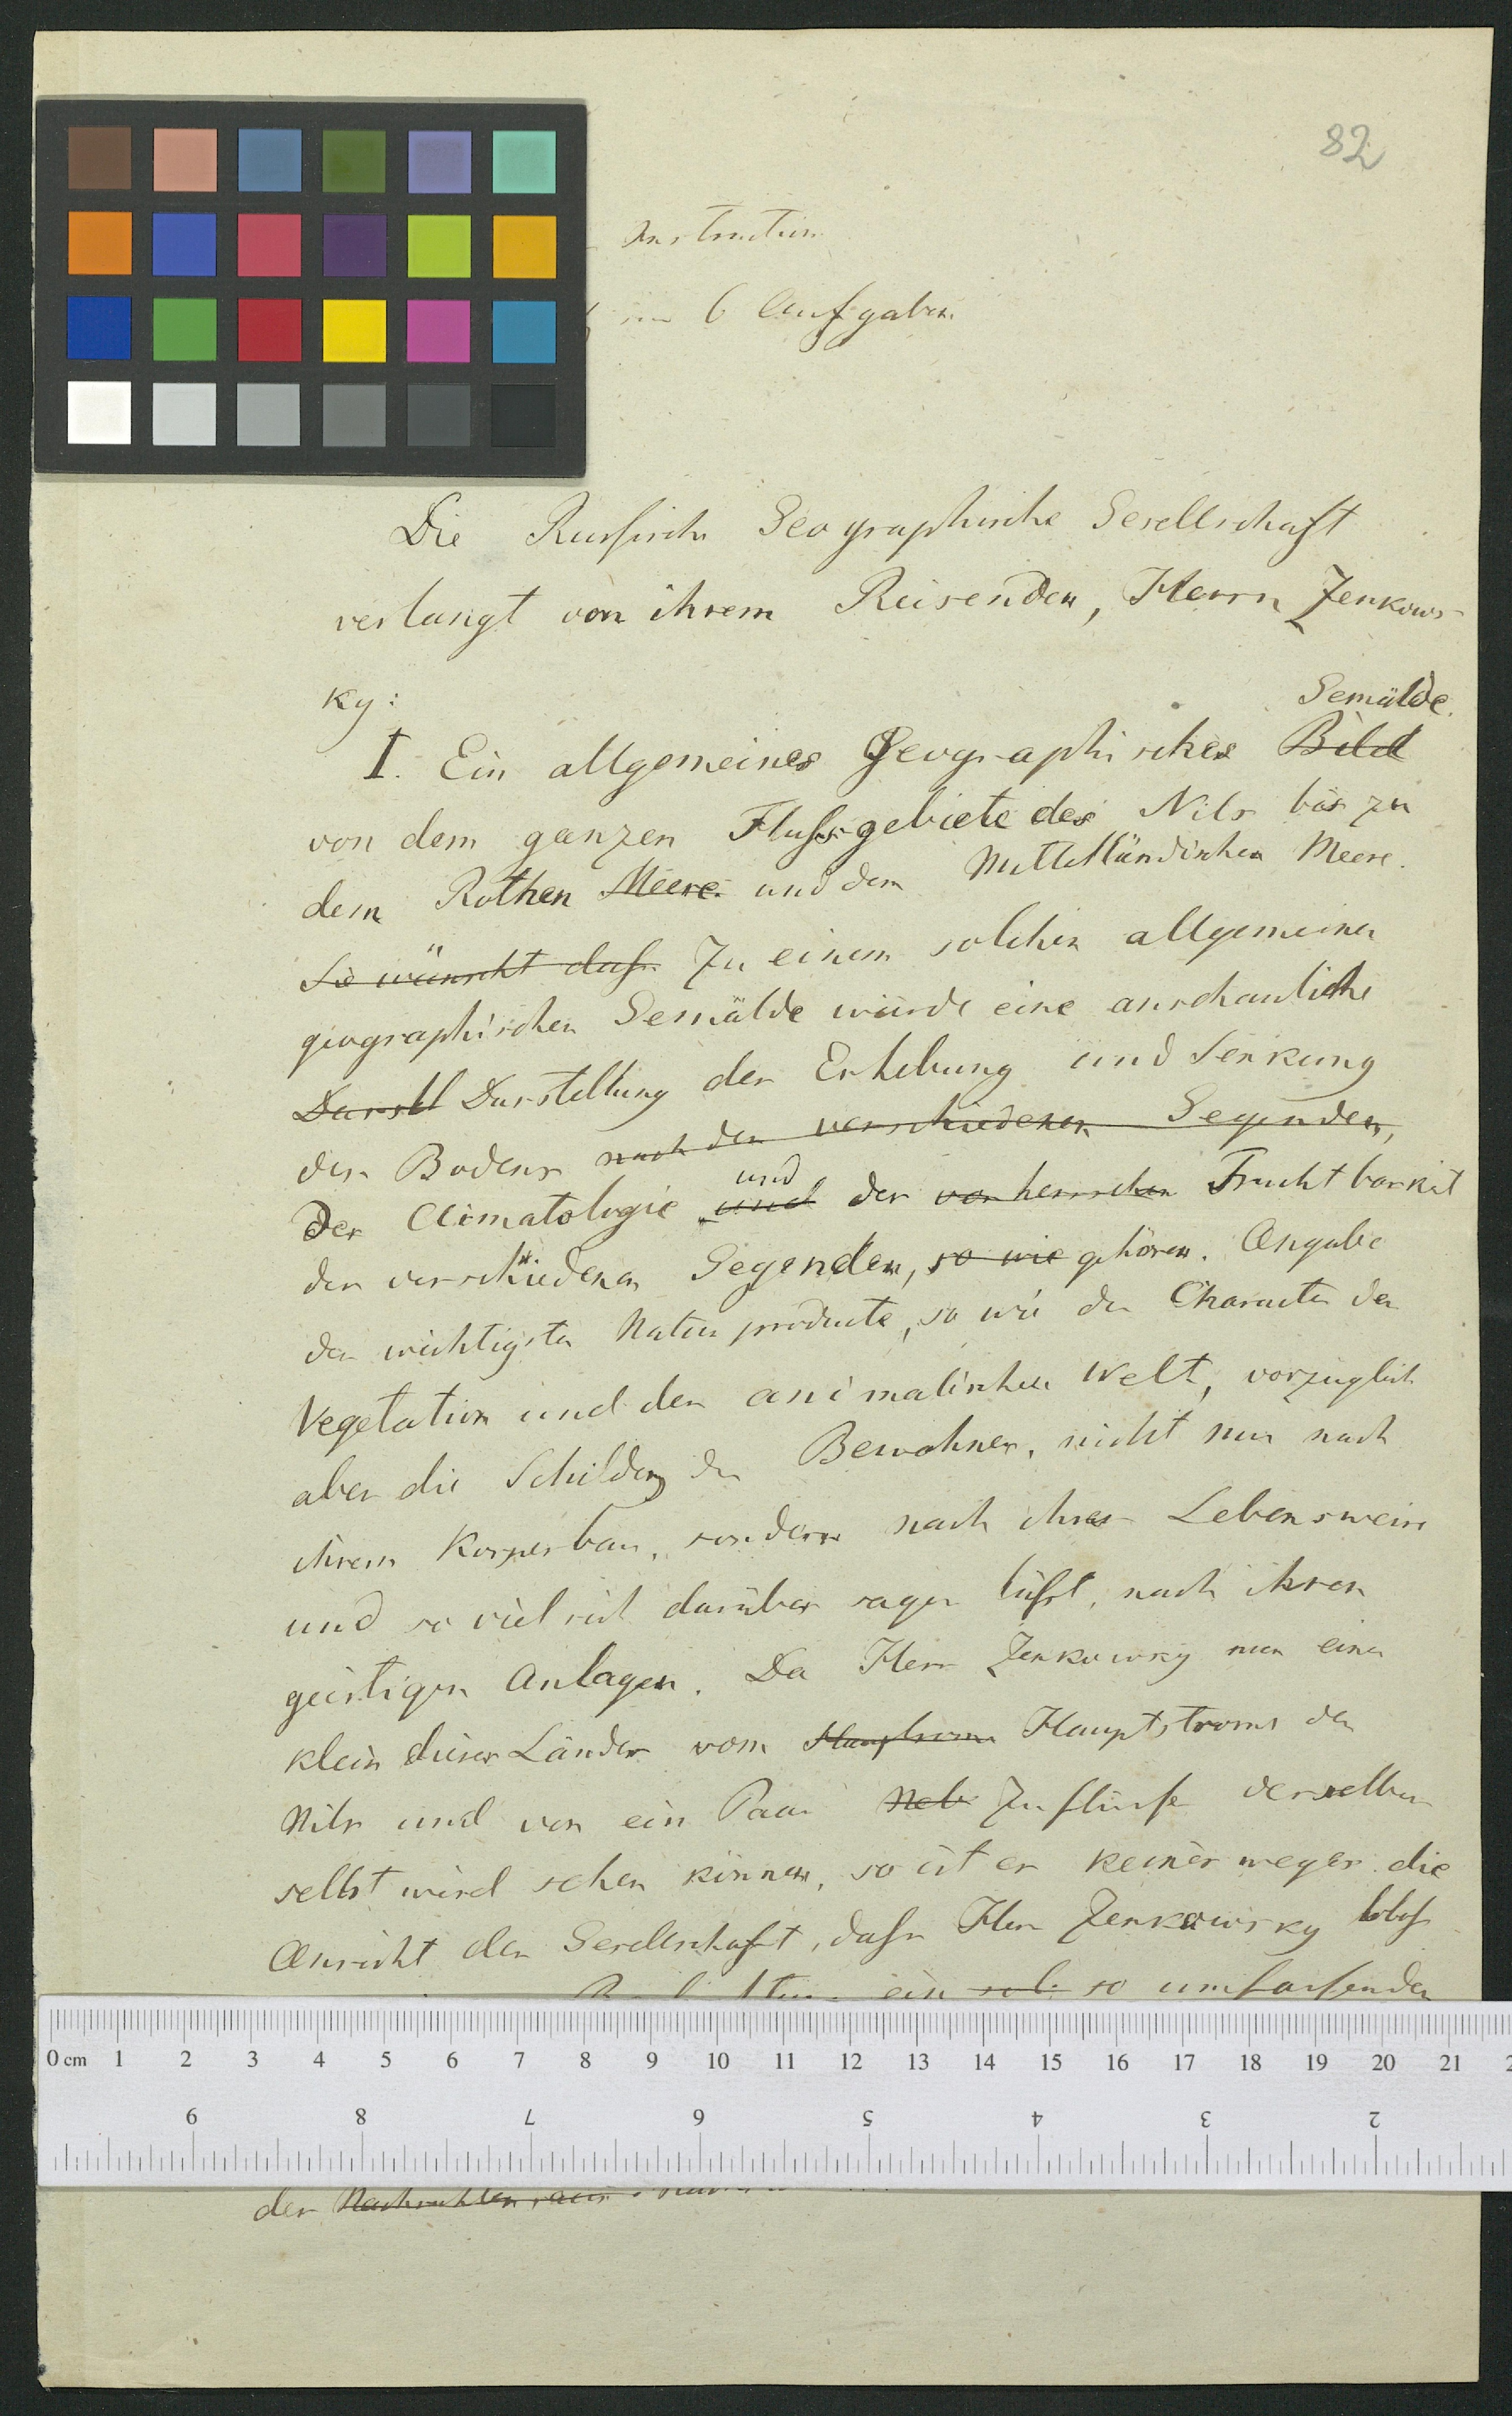 82
Instruction
6 Aufgaben
Die Russische Geographische Gesellschaft
verlangt von ihrem Reisenden, Herrn Zenkows-
ky:
Gemälde.
I. Ein allgemeines Geographisches Bild
von dem ganzen Flussgebiete des Nils bis zu
dem Rothen Meere und dem Mittelländischen Meere.
Sie wünscht dass Zu einem solchen allgemeinen
geographischen Gemälde würde eine anschauliche
Darstl Darstellung der Erhebung und Senkung
des Bodens nach den verschiedenen Gegenden,
und
der Climatologie und der vorherrschen Fruchtbarkeit
der verschiedenen Gegenden, so wie gehören. Angabe
der wichtigsten Naturproducte, so wie der Character der
Vegetation und der animalischen Welt, vorzüglich
aber die Schilderung der Bewohner, nicht nur nach
ihrem Körperbau, sondern nach ihrer Lebensweise
und so viel sich darüber sagen lässt, nach ihren
geistigen Anlagen. Da Herr Zenkowsky nun einen
klein dieser Länder vom Hauptstrom Hauptstroms des
Nils und von ein Paar Neb Zuflüsse desselben
selbst wird sehen können, so ist es keines weges die
Ansicht der Gesellschaft, dass Herr Zenkowsky bloss
ein sol so umfassendes
der Nachrichten, aus
0 cm 1 2 3 4 5 6 7 8 9 10 11 12 13 14 15 16 17 18 19 20 21
9 8 7 6 5 4 3 2